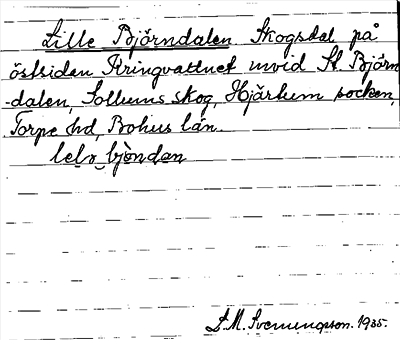 Lille Björndalen Skogsdal på
östsidan Kringvattnet invid St. Björn
-dalen, Sollums skog, Hjärtum socken,
Torpe hd, Bohus län.
lelə bjöndan
S.M. Svenungson. 1935.